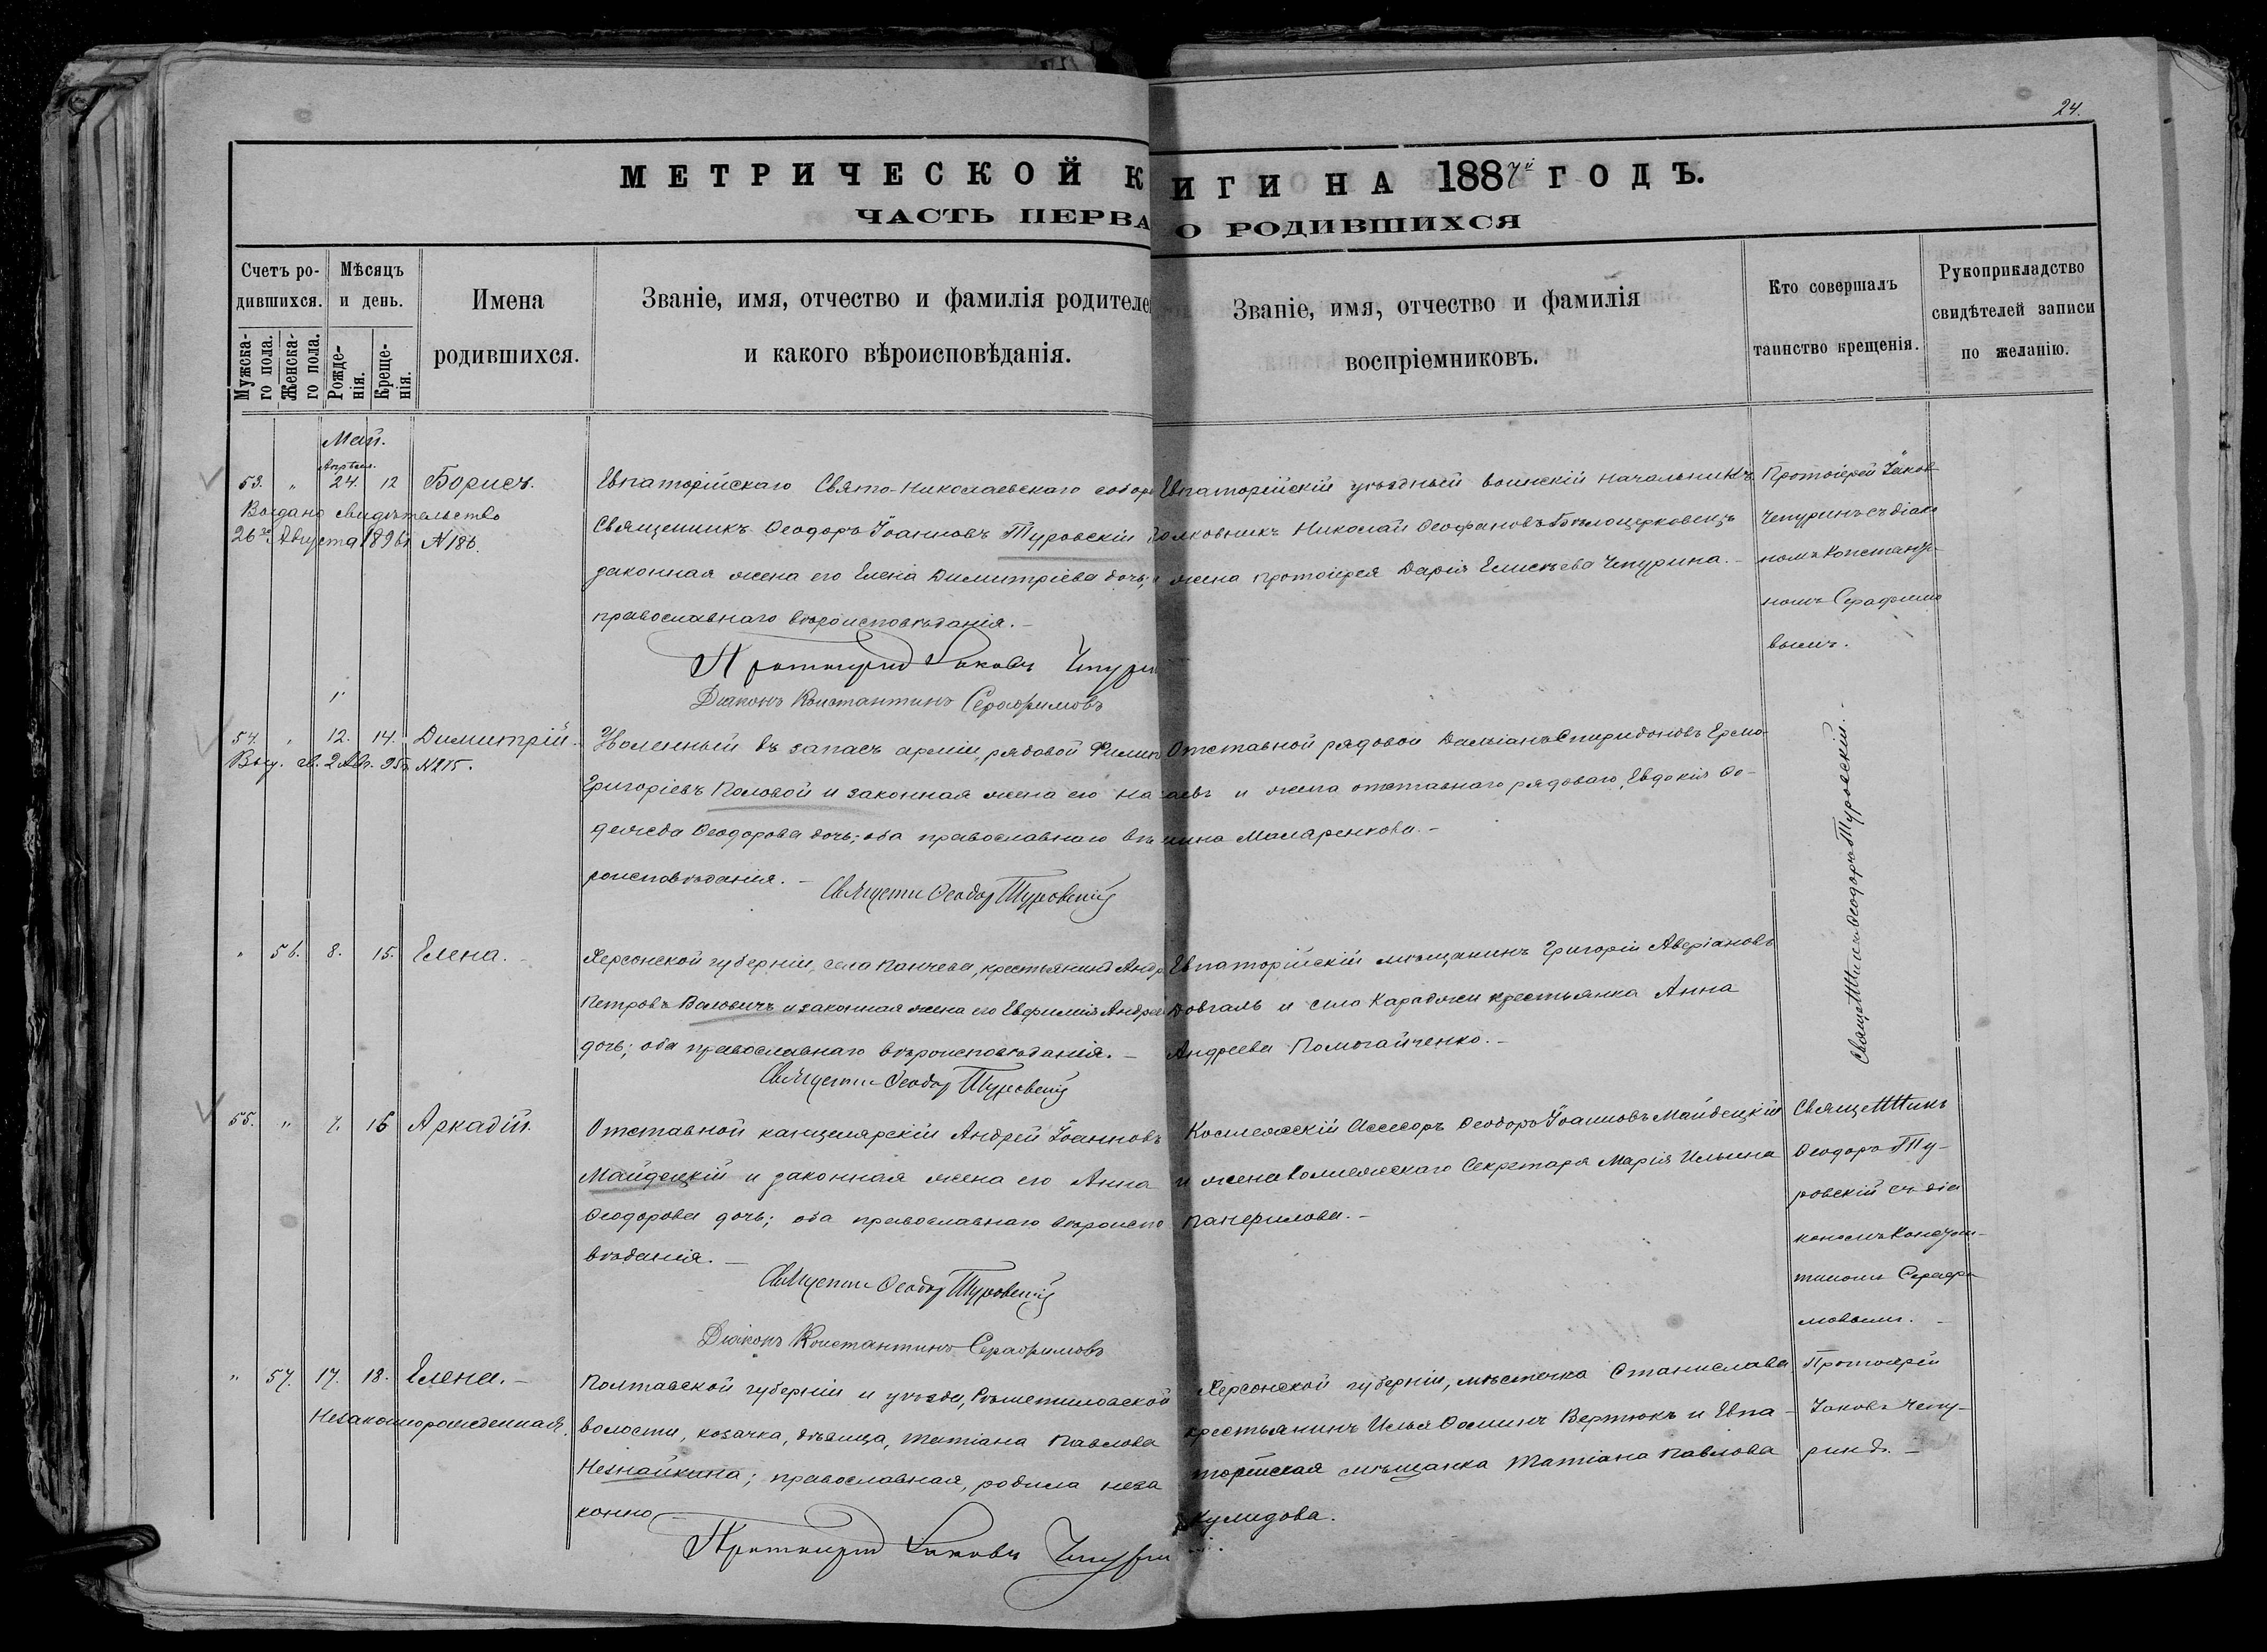 24.
МЕТРИЧЕСКОЙ К ИГИ НА 1887й ГОДЪ.
ЧАСТЬ ПЕРВА О РОДИВШИХСЯ
Счетъ родившихся.
Мужскаго пола.
Женскаго пола.
Мѣсяцъ и день.
Рожденія.
Крещенія.
Имена
родившихся.
Званіе, имя, отчество и фамилія родителе
и какого вѣроисповѣданія.
Званіе, имя, отчество и фамилія
воспріемниковъ.
Кто совершалъ
таинство крещенія.
Рукоприкладство
свидѣтелей записи
по желанію.
Май.
Апрѣля.
53. " 24. 12 Борисъ.
Выдано свидѣтельство
26го Августа 1896 г. № 186.
Евпаторійскаго Свято-Николаевскаго собора
Священникъ Ѳеодоръ Іоанновъ Туровскій
законная жена его Елена Димитріева дочь;
православнаго вѣроисповѣданія.—
Протоіерей Іаковъ Чепури
Діаконъ Константинъ Серафимовъ
Евпаторійскій уѣздный воинскій начальникъ
полковникъ Николай Ѳеофановъ Бѣлоцерковецъ
жена протоіерея Дарія Елисѣева Чепурина.—
Протоіерей Іаков
Чепуринъ съ діако
номъ Константи-
номъ Серафимо
вымъ.
54. " 12. 14. Димитрій.
Выд. св. 2 Авг. 95 г. № 215.
Уволенный въ запасъ арміи, рядовой Филип
Григорьевъ Половой и законная жена его На
дежда Ѳеодорова дочь; оба православнаго вѣ
роисповѣданія.—
Священникъ Ѳеодоръ Туровскій
Отставной рядовой Даміанъ Спиридоновъ Ермо
аевъ и жена отставнаго рядоваго, Евдокія Ѳо-
мина Маларенкова.—
Священникъ Ѳеодоръ Туровскій.—
" 56. 8. 15. Елена.—
Херсонской губерніи, села Панчева, крестьянинъ Андр
Петровъ Воловичъ и законная жена его Евфимія Андрее
дочь; оба православнаго вѣроисповѣданія.—
Священникъ Ѳеодоръ Туровскій
Евпаторійскій мѣщанинъ Григорій Аверіановъ
Довгаль и села Караджи крестьянка Анна
Андреева Помогайченко.—
55. " 7. 16 Аркадій.
Отставной канцелярскій Андрей Іоанновъ
Майдецкій и законная жена его Анна
Ѳеодорова дочь; оба православнаго вѣроиспо
вѣданія.—
Священникъ Ѳеодоръ Туровскій
Діаконъ Константинъ Серафимовъ
Коллежскій Ассесоръ Ѳеодоръ Іоанновъ Майдецкій
и жена Коллежскаго Секретаря Марія Ильина
Панфилова.—
Священникъ
Ѳеодоръ Ту-
ровскій съ діа
кономъ Констан-
тиномъ Серафи
мовымъ.—
" 57. 17. 18. Елена.—
Незаконнорожденная.
Полтавской губерніи и уѣзда, Рѣшетиловской
волости, козачка, дѣвица, Татіана Павлова
Незнайкина; православная, родила неза
конно—
Протоіерей Іаковъ Чепури
Херсонской губерніи, мѣстечка Станислава
крестьянинъ Илья Ѳоминъ Вертюкъ и Евпа-
торійская мѣщанка Татіана Павлова
Кулидова.
Протоіерей
Іаковъ Чепу-
ринъ.—